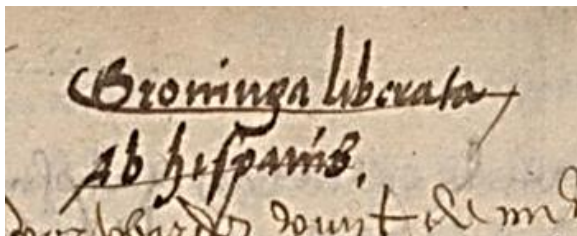 Groninga liberata
ab hispanis.